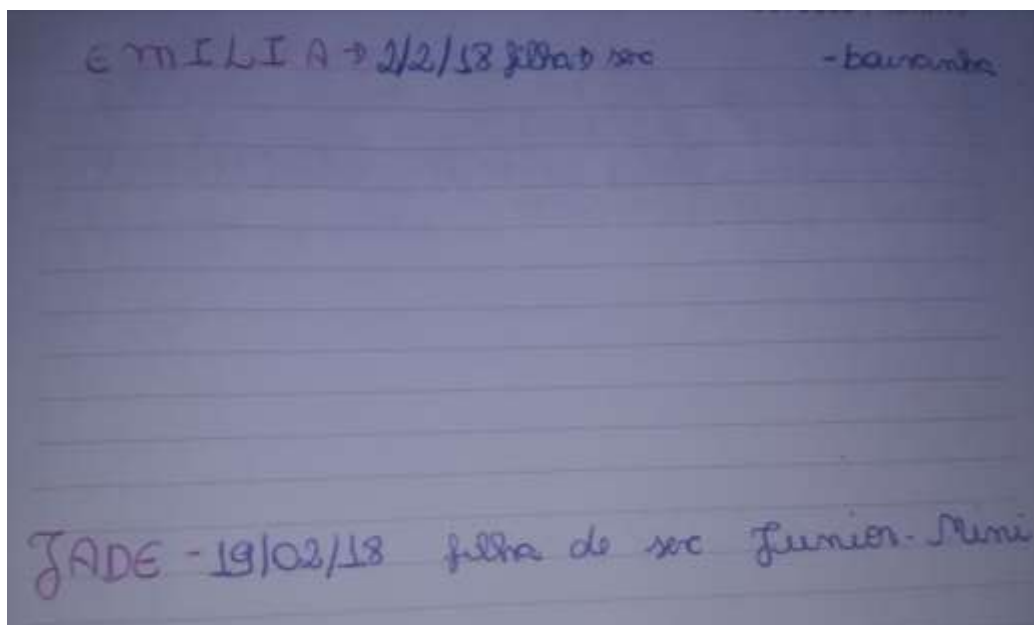 EMILIA → 2/2/18 filha sec -baianinha
JADE - 19/02/18 filha de sec Junior - Mini